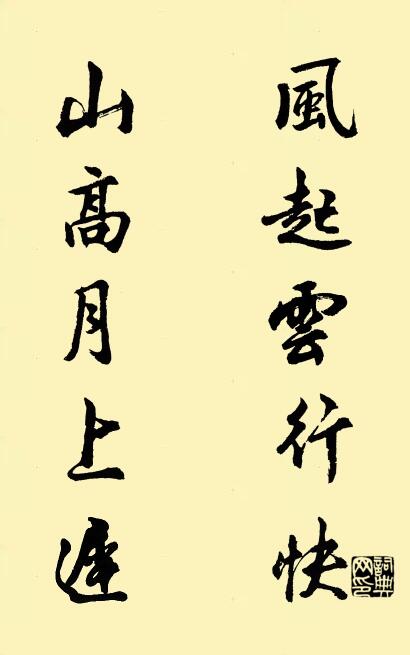 風起雲行快
山高月上遲
詞典
网印